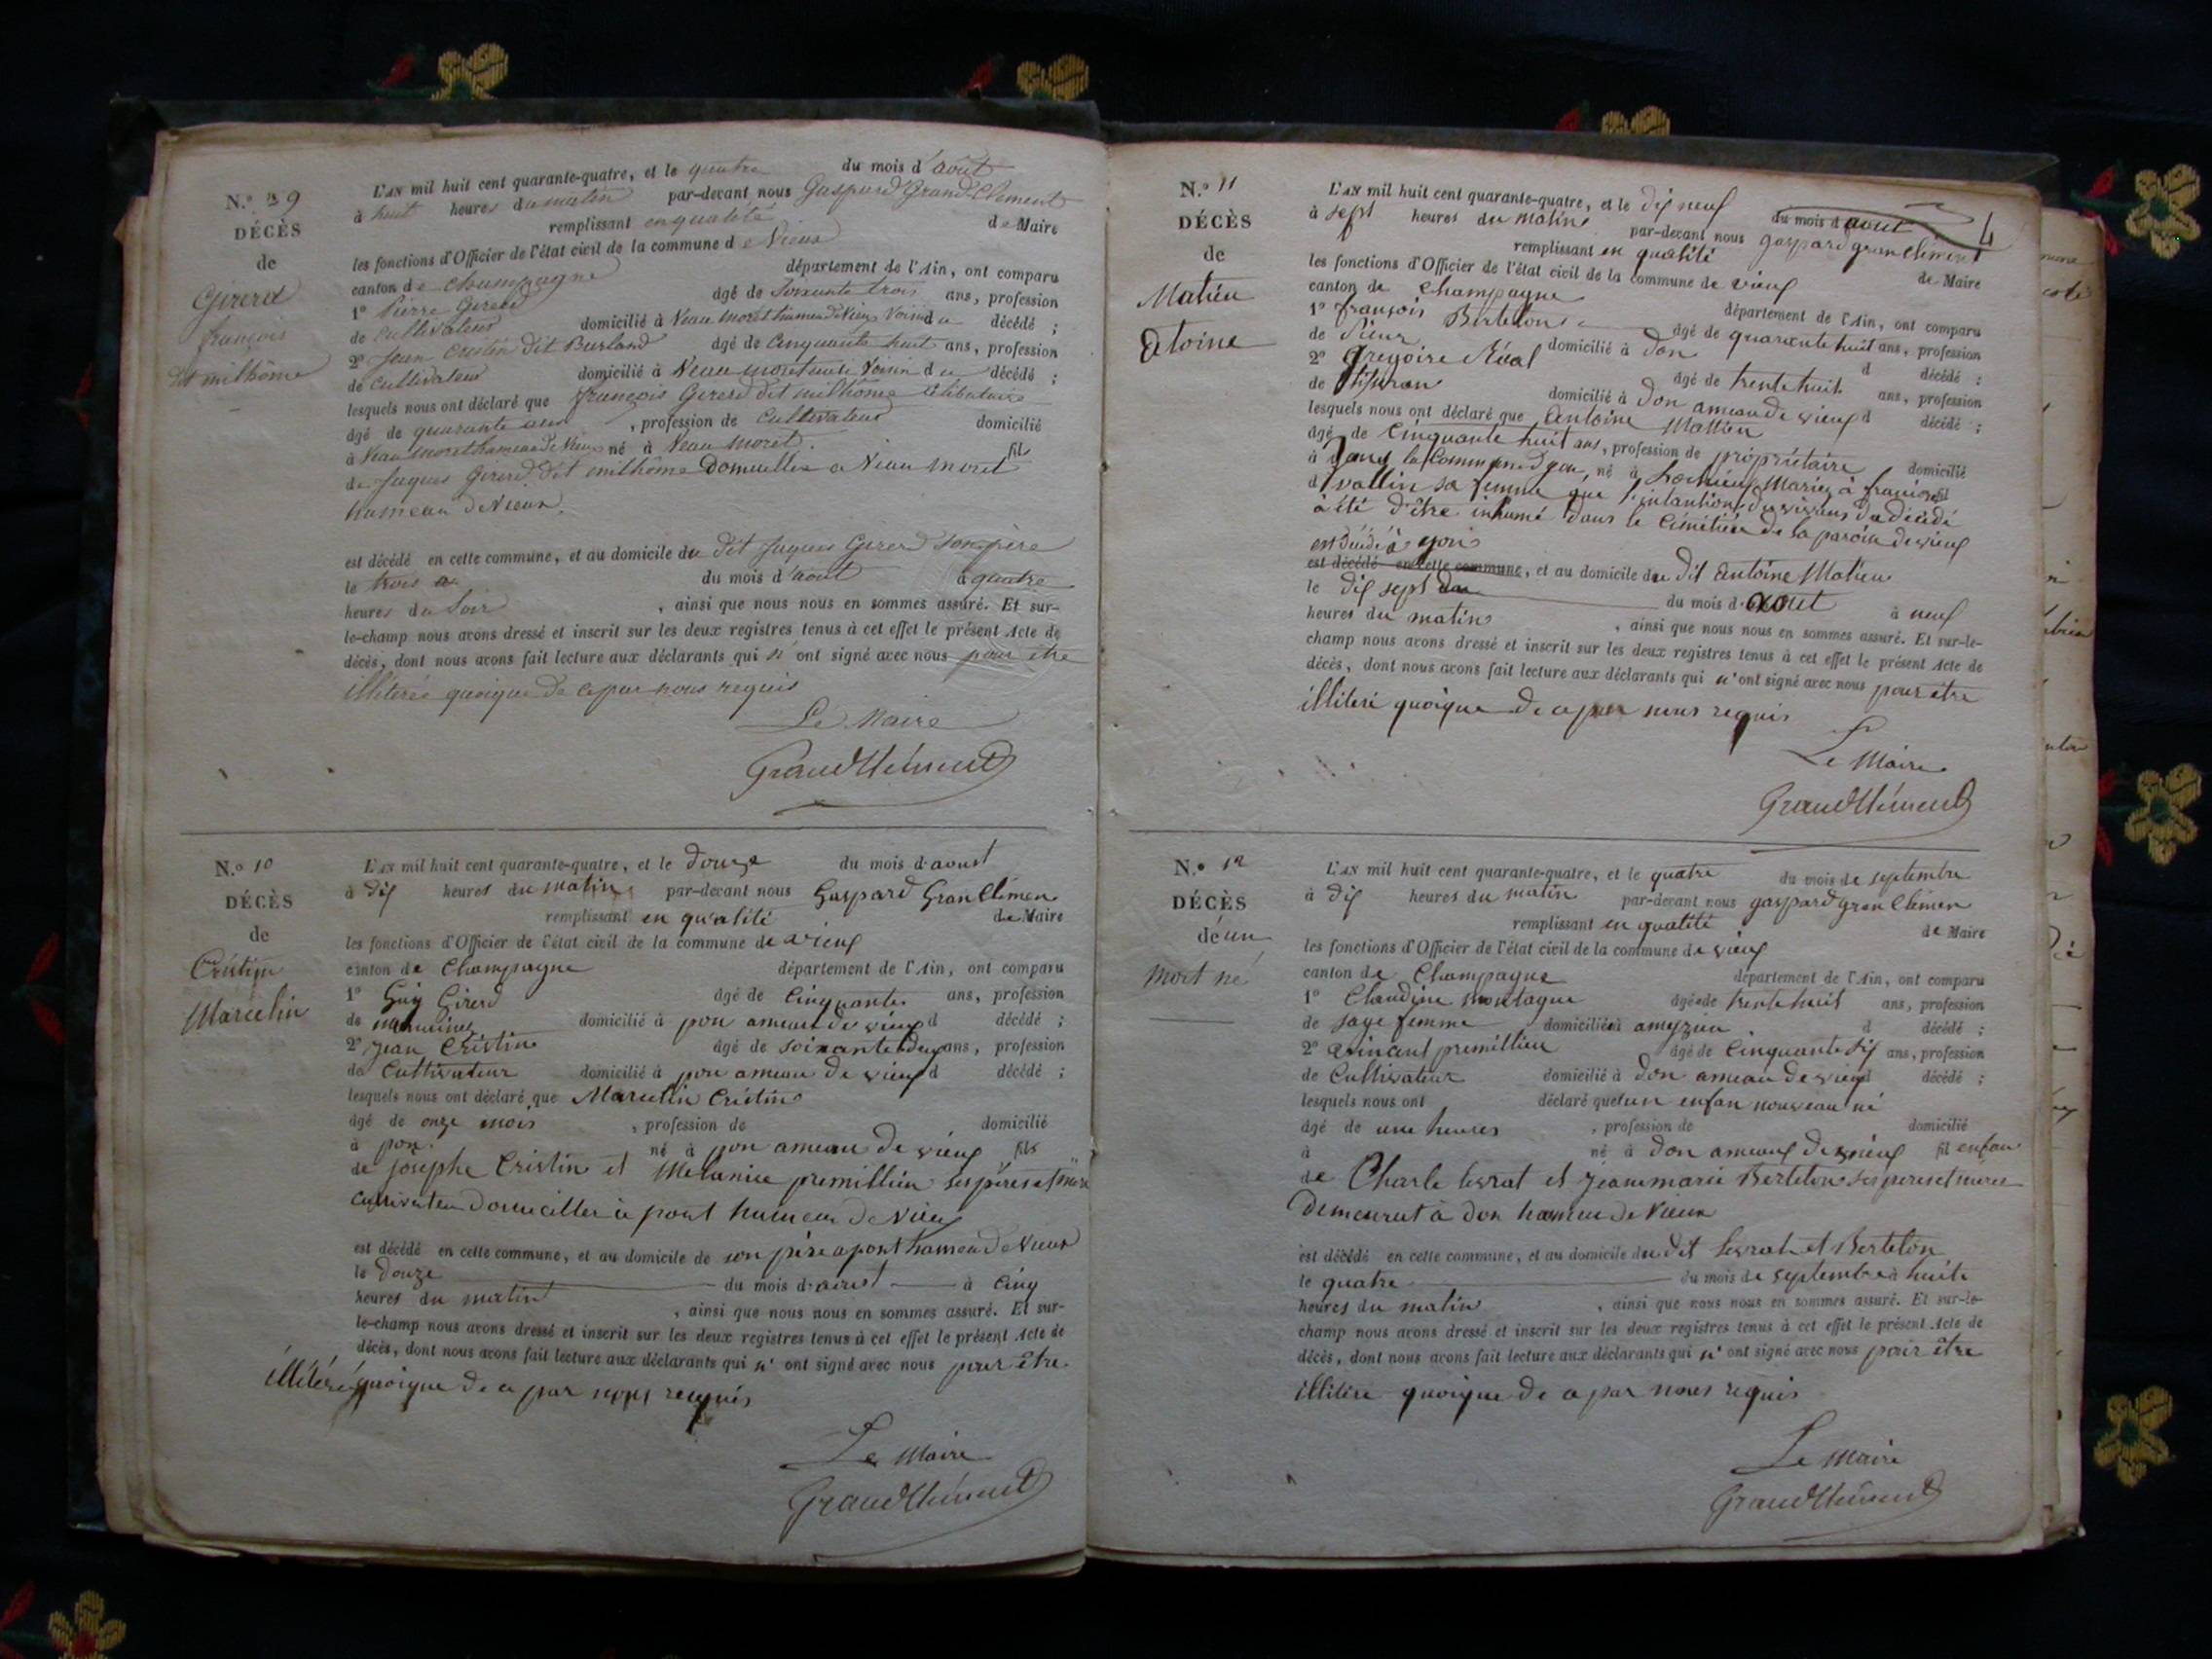 N.º 9
DÉCÈS
de
Girerd
françois
dit milhôme
L'AN mil huit cent quarante-quatre, et le quatre du mois d'août
à huit heures du matin par-devant nous Gaspard Grand-Clement
remplissant en qualité de Maire
les fonctions d'Officier de l'état civil de la commune de Vieux
canton de Champagne département de l'Ain, ont comparu
1º Pierre Girerd âgé de soixante trois ans, profession
de cultivateur domicilié à Veau moret hameau de Vieux voisin du décédé ;
2º Jean Cristin dit Burland âgé de cinquante huit ans, profession
de cultivateur domicilié à Veau moret voisin du décédé ;
lesquels nous ont déclaré que françois Girerd dit milhôme célibataire
âgé de quarante ans, profession de cultivateur domicilié
à Veau moret hameau de Vieux né à Veau moret. fils
de Jaques Girerd dit milhôme Domicilier a Veau moret
hameau de Vieux.
est décédé en cette commune, et au domicile du dit Jaques Girerd son père
le trois du mois d'août à quatre
heures du soir, ainsi que nous nous en sommes assuré. Et sur-
le-champ nous avons dressé et inscrit sur les deux registres tenus à cet effet le présent Acte de
décès, dont nous avons fait lecture aux déclarants qui n'ont signé avec nous pour être
illiterés quoique de ce par nous requis
Le Maire
GrandClément
N.º 10
DÉCÈS
de
Cristin
Marcelin
L'AN mil huit cent quarante-quatre, et le douze du mois d'aoust
à dix heures du matin par-devant nous Gaspard Gran Clémen
remplissant en qualité de Maire
les fonctions d'Officier de l'état civil de la commune de vieux
canton de Champagne département de l'Ain, ont comparu
1º Guy Girerd âgé de Cinquante ans, profession
de domicilié à pon ameau de vieux d décédé ;
2º Jean Cristin âgé de soixante deux ans, profession
de Cultivateur domicilié à pon ameau de vieux d décédé ;
lesquels nous ont déclaré que Marcelin Cristin
âgé de onze mois, profession de domicilié
à pon. né à pon ameau de vieux fils
de josephe Cristin et Melanie premillieu ses pères et mère
cultivateur Domicillier à pont hameau de Vieux
est décédé en cette commune, et au domicile de son père a pont hameau de Vieux
le Douze du mois d'aoust à Cinq
heures du matin, ainsi que nous nous en sommes assuré. Et sur-
le-champ nous avons dressé et inscrit sur les deux registres tenus à cet effet le présent Acte de
décès, dont nous avons fait lecture aux déclarants qui n'ont signé avec nous pour être
illitéré quoique de ce par nous requis
Le Maire
GrandClément
N.º 11
4
DÉCÈS
de
Matieu
Atoine
L'AN mil huit cent quarante-quatre, et le dix neuf du mois d'aout
à sept heures du matin par-devant nous gaspard gran Clément
remplissant en qualité de Maire
les fonctions d'Officier de l'état civil de la commune de vieux
canton de Champagne département de l'Ain, ont comparu
1º françois Berteton âgé de quarante huit ans, profession
de domicilié à Don d décédé ;
2º Gregoire Réval âgé de trente huit ans, profession
de tisseran domicilié à Don ameau de vieux d décédé ;
lesquels nous ont déclaré que Antoine Matieu
âgé de Cinquante huit ans, profession de propriétaire domicilié
à dans la Commune d'yon, né à Lochieux Mariez à françoise fil
d vallin sa femme que l'intantion du vivans du décédé
à été d'être inhumé dans le Cimétière de la paroise de vieux
est Décédé à yon
est décédé en cette commune, et au domicile du dit Antoine Matieu
le dix sept du mois d'aout à neuf
heures du matin, ainsi que nous nous en sommes assuré. Et sur-le-
champ nous avons dressé et inscrit sur les deux registres tenus à cet effet le présent Acte de
décès, dont nous avons fait lecture aux déclarants qui n'ont signé avec nous pour être
illiteré quoique de ce par nous requis
Le Maire
GrandClément
N.º 12
DÉCÈS
de un
mort né
L'AN mil huit cent quarante-quatre, et le quatre du mois de septembre
à dix heures du matin par-devant nous gaspard gran Clémen
remplissant en qualité de Maire
les fonctions d'Officier de l'état civil de la commune de vieux
canton de Champagne département de l'Ain, ont comparu
1º Claudine montagne âgée de trente huit ans, profession
de sage femme domiciliée à amyzieu d décédé ;
2º vincent premillieu âgé de Cinquante six ans, profession
de Cultivateur domicilié à don ameau de vieux d décédé ;
lesquels nous ont déclaré que un enfan nouveau né
âgé de une heures, profession de domicilié
à né à don ameau de vieux fil enfan
de Charle levrat et jeanmarie Berteton ses peres et mères
Demeurut à don hameau de Vieux
est décédé en cette commune, et au domicile du dit Levrat et Berteton
le quatre du mois de septembre à huite
heures du matin, ainsi que nous nous en sommes assuré. Et sur-le-
champ nous avons dressé et inscrit sur les deux registres tenus à cet effet le présent Acte de
décès, dont nous avons fait lecture aux déclarants qui n'ont signé avec nous pour être
illitéré quoique de ce par nous requis
Le Maire
GrandClément